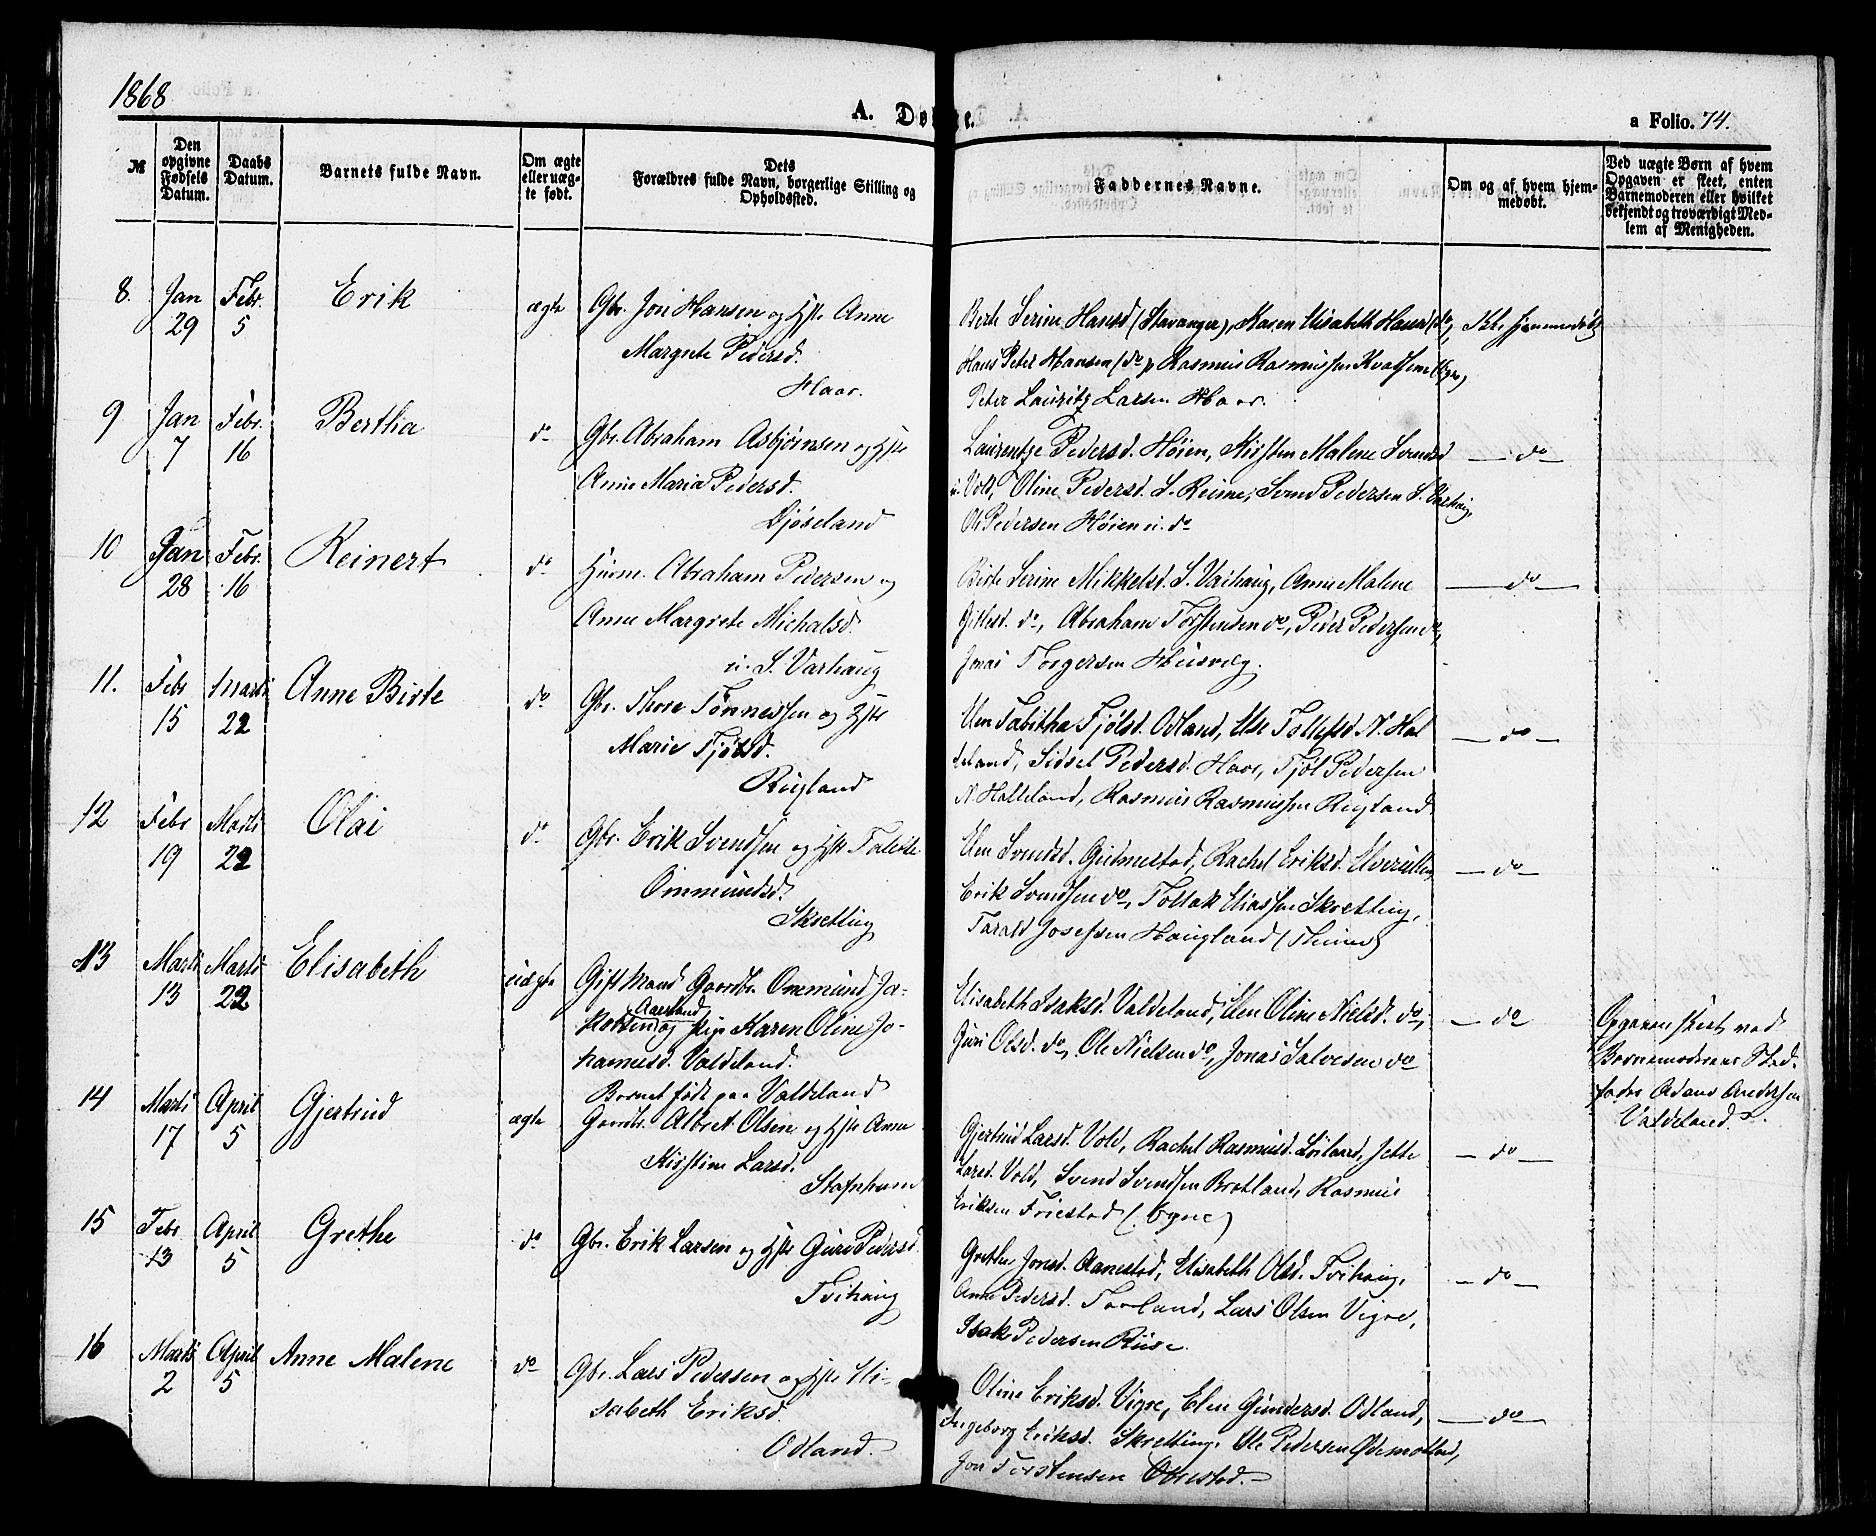 1868
A. Døbte.
a Folio. 74.
№
Den opgivne Fødsels Datum.
Daabs Datum.
Barnets fulde Navn.
Om ægte eller uægte født.
Dets Forældres fulde Navn, borgerlige Stilling og Opholdssted.
Faddernes Navne.
Om og af hvem hjemmedøbt.
Ved uægte Børn af hvem Opgaven er skeet, enten Barnemoderen eller hvilket bekjendt og troværdigt Medlem af Menigheden.
8. Jan 29 Febr. 5 Erik ægte
Gbr. Jon Hansen og Hstr Anne
Margrete Pedersd.
Haar.
Berte Serine Hansd (Stavanger), Karen Elisabeth Hansd (do),
Hans Peter Hansen (do), Rasmus Rasmussen Kvalheim (Ogne)
Peter Lauritz Larsen Haar.
Ikke hjemmedøbt
9 Jan 7 Febr. 16 Bertha do
Gbr. Abraham Asbjørnsen og Hstr
Anne Maria Pedersd.
Djøseland
Laurentze Pedersd. Høien, Kirsten Malene Svendsd
u. Vold, Oline Pedersd. S. Reime, Svend Pedersen S. Varhaug,
Ole Pedersen Høien u. do
do
10 Jan 28 Febr. 16 Reinert do
Huusm. Abraham Pedersen og
Anne Margrete Michalsd.
u. S. Varhaug
Birte Serine Mikkelsd. S. Varhaug, Anne Malene
Gitlesd. do, Abraham Torstensen do, Peder Pedersen do,
Jonas Torgersen Husveg.
do
11. Febr 15 Marts 22 Anne Birte do
Gbr. Thore Tønnessen og Hstr
Marie Tjølsd.
Rugland
Elen Tabitha Tjølsd. Odland, Else Tollefsd. N. Hal
deland, Sidsel Pedersd. Haar, Tjøl Pedersen
N. Halleland, Rasmus Rasmussen Rugland.
do
12 Febr 19 Marts 22 Olai do
Gbr. Erik Svendsen og Hstr
Ommundsd.
Skretting
Elen Svendsd. Gudmestad, Rachel Eriksd.
Erik Svendsen do, Tollak Eliassen Skretting,
Tarald Josefsen Haugland (Thime)
do
13 Marts 13 Marts 22 Elisabeth uægte
Gift Mand Gaardbr. Ommund Ja-
kobsen Aarsland og Pige Karen Oline Jo-
hannesd. Valdeland.
Barnet født paa Valdeland
Elisabeth Isaksd. Valdeland, Elen Oline Nielsd. do,
Guri Olsd. do, Ole Nielsen do, Jonas Salvesen do
do
Opgaven skeet ved
Barnemoderens Sted-
fader Adam Andersen
Valdeland.
14 Marts 17 April 5 Gjertrud ægte
Gaardbr. Albret Olsen og Hstr Anne
Kirstine Larsd.
Stafnheim
Gjertrud Larsd. Vold, Rachel Rasmusd. Løiland, Jette
Larsd. Vold, Svend Svendsen Bratland, Rasmus
Eriksen Friestad (Ogne)
do
15 Febr 13 April 5 Grethe do
Gbr. Erik Larsen og Hstr Guri Pedersd.
Tvihaug
Grethe Jonsd. Aanestad, Elisabeth Olsd. Tvihaug,
Anne Pedersd. Torland, Lars Olsen Vigre,
Isak Pedersen Risse.
do
16 Marts 2 April 5 Anne Malene do
Gbr. Lars Pedersen og Hstr Eli-
sabeth Eriksd.
Odland.
Oline Eriksd. Vigre, Elen Gundersd. Odland,
Ingeborg Eriksd. Skretting, Ole Pedersen Ødemotland,
Jon Torstensen Obrestad.
do